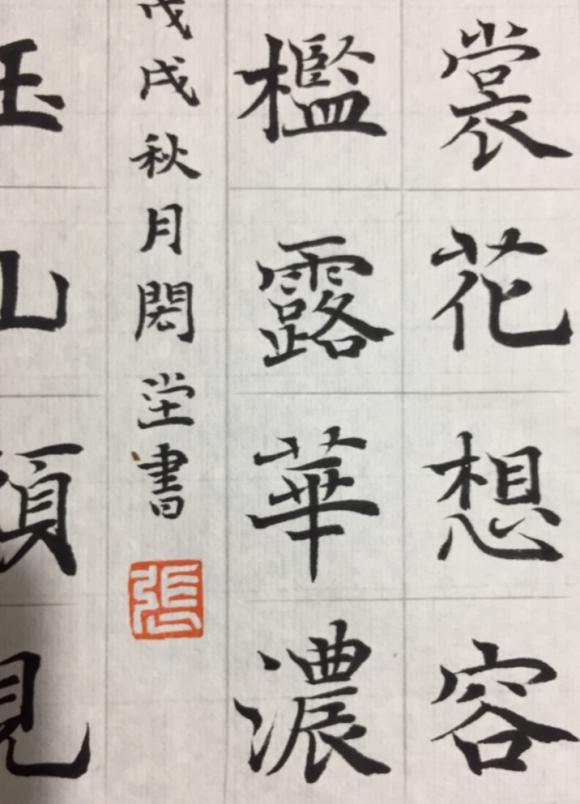 裳花想容
檻露華濃
戊戌秋月堂書
張
玉山見